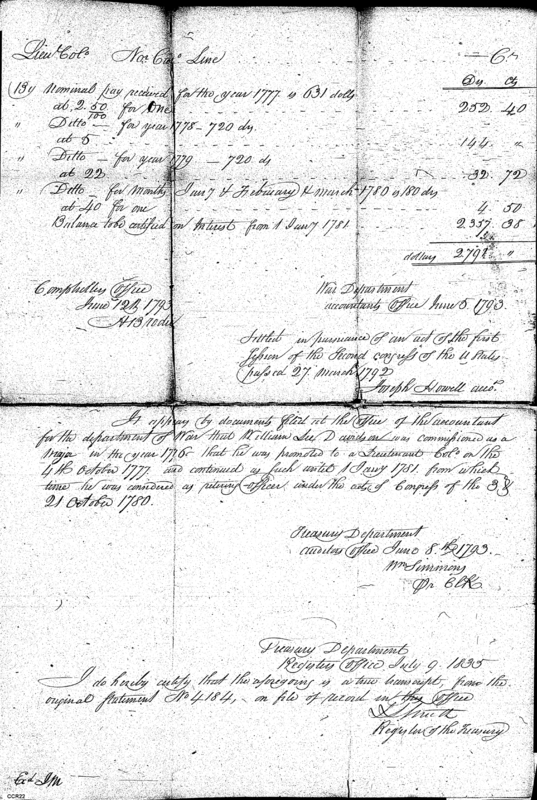 Lieut Col. No. Car. Line Cr
Ds Cts
By Nominal pay received for the year 1777 is 631 dolls
at 2.50/100 for one 252 40
" Ditto — for year 1778 — 720 ds
at 5 144 "
" Ditto — for year 1779 — 720 ds
at 22 32 72
" Ditto — for Months Jany & February & March 1780 is 180 ds
at 40 for one 4 50
Balance to be certified on Interest from 1 Jany 1781 2357 38
dollars 2791 "
Comptrollers Office
June 12th 1793
War Department
accountants Office June 5. 1793.
Settled in pursuance of an act of the first
Session of the Second Congress of the U States
passed 27 March 1792
Joseph Howell acct.
It appears by documents filed at the office of the accountant
for the department of War that William Lee Davidson was commissioned as a
Major in the year 1776 that he was promoted to a Lieutenant Colo. on the
4th October 1777. and continued as such until 1 Jany 1781. from which
time he was considered as retiring officer under the acts of Congress of the 3 &
21 October 1780.
Treasury Department
auditors Office June 8th 1793.
Wm Simmons
Pr Clk
Treasury Department
Registers Office July 9. 1835
I do hereby certify that the aforegoing is a true transcript from the
original Statement No 4184, on file of record in this Office
Smith
Register of the Treasury
Exd
CCR22